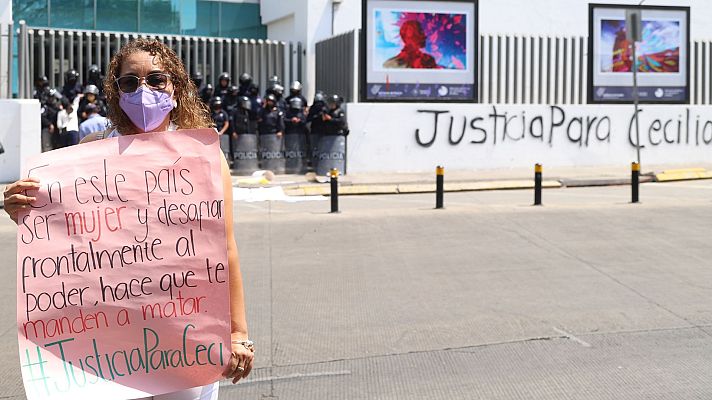 Justicia Para Cecilia
POLICIA
POLICIA
POLICIA
En este país
ser mujer y desafiar
frontalmente al
poder, hace que te
manden a matar.
#JusticiaParaCeci